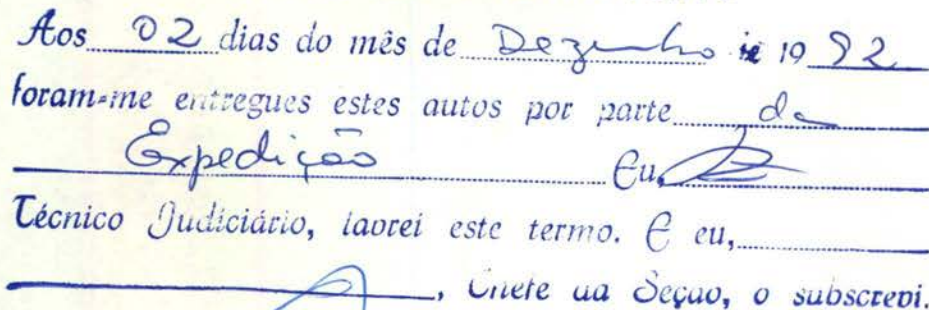 Aos 02 dias do mês de Dezembro de 19 92
foram-me entregues estes autos por parte da
Expedição Eu,
Técnico Judiciário, lavrei este termo. E eu,
, Chefe da Seção, o subscrevi.